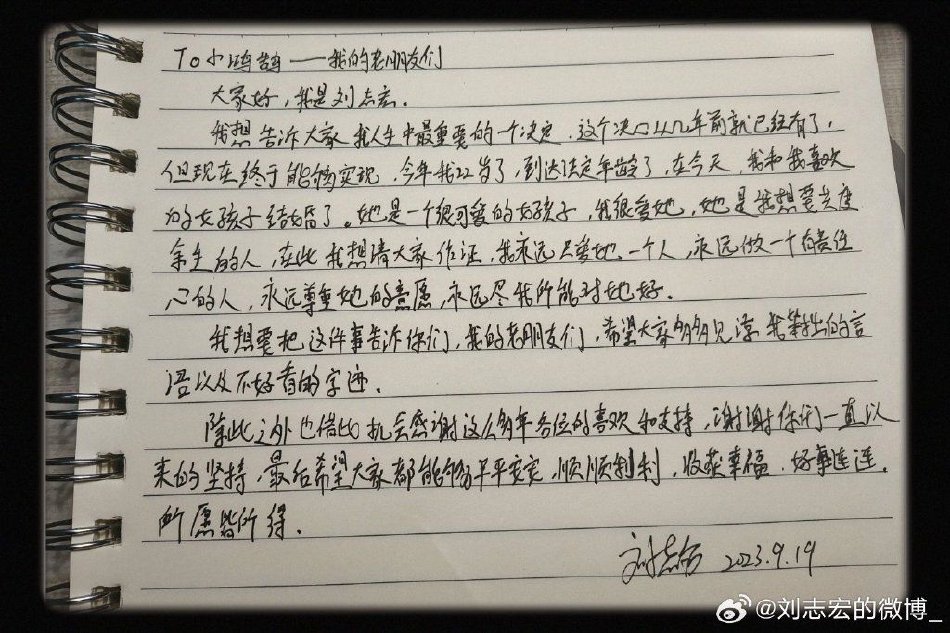 To 小鸿鹄——我的老朋友们
大家好，我是刘志宏。
我想告诉大家我人生中最重要的一个决定，这个决定从几年前就已经有了，
但现在终于能够实现，今年我22岁了，到达法定年龄了，在今天，我和我喜欢
的女孩子结婚了。她是一个很可爱的女孩子，我很爱她，她是我想要共度
余生的人，在此我想请大家作证，我永远只爱她一个人，永远做一个有责任
心的人，永远尊重她的意愿，永远尽我所能对她好。
我想要把这件事告诉你们，我的老朋友们，希望大家多多见谅我笨拙的言
语以及不好看的字迹。
除此之外也借此机会感谢这么多年各位的喜欢和支持，谢谢你们一直以
来的坚持，最后希望大家都能够平平安安，顺顺利利，收获幸福，好事连连，
所愿皆所得。
刘志宏 2023.9.19
@刘志宏的微博_